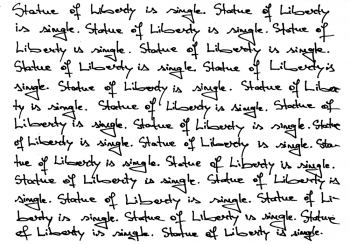 Statue of Liberty is single. Statue of Liberty
is single. Statue of Liberty is single. Statue of
Liberty is single. Statue of Liberty is single.
Statue of Liberty is single. Statue of Liberty is
single. Statue of Liberty is single. Statue of Liber
ty is single. Statue of Liberty is single. Statue of
Liberty is single. Statue of Liberty is single. Statue
of Liberty is single. Statue of Liberty is single. Sta-
tue of Liberty is single. Statue of Liberty is single.
Statue of Liberty is single. Statue of Liberty is
single. Statue of Liberty is single. Statue of Li-
berty is single. Statue of Liberty is single. Statue
of Liberty is single. Statue of Liberty is single.